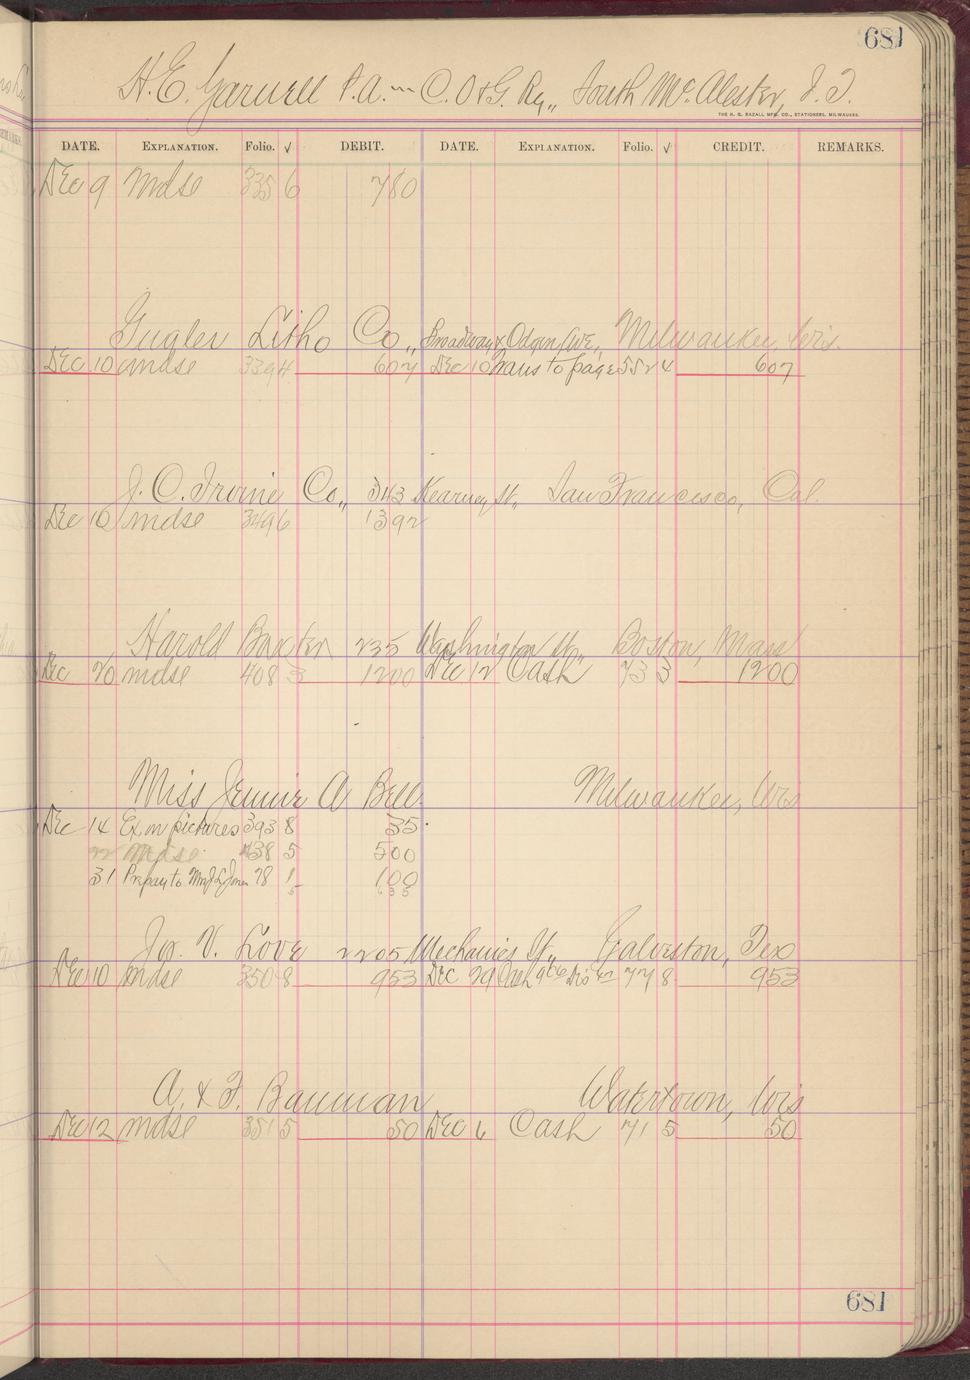 681
H. E. Yarnell P. A. C. O & G. Ry,, South McAlester, I. T.
THE H. G. RAZALL MFG. CO., STATIONERS, MILWAUKEE.
DATE. EXPLANATION. Folio. √ DEBIT. DATE. EXPLANATION. Folio. √ CREDIT. REMARKS.
Dec 9 Mdse 335 6 780
Gugler Litho Co,, Broadway & Odgen Ave, Milwaukee, Wis.
Dec 10 mdse 339 4 607 Dec 10 Trans to page 552 4 607
J. C. Irvine Co,, 343 Kearney St, San Francisco, Cal.
Dec 10 mdse 349 6 1392
Harold Baxter 235 Washington St,, Boston, Mass
Dec 20 mdse 408 3 1200 Dec 12 Cash 73 3 1200
Miss Jennie A Bell Milwaukee, Wis
Dec 14 Ex on pictures 393 8 35
22 Mdse 438 5 500
31 Prepay to 78 1 100
635
Jo. V. Love 2205 Mechanics St,, Galveston, Tex
Dec 10 mdse 350 8 953 Dec 29 Cash Dis 77 8 953
A. & F. Bauman Watertown, Wis
Dec 12 mdse 351 5 50 Dec 6 Cash 71 5 50
681